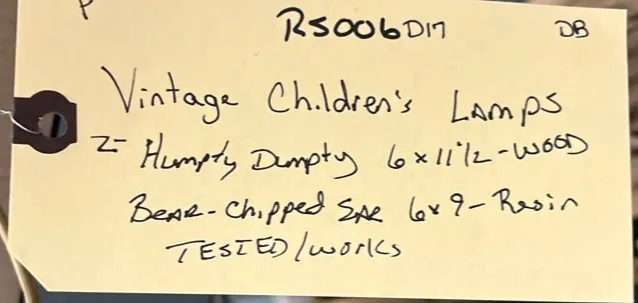 P
RS006 D17 DB
Vintage Children's Lamps
2- Humpty Dumpty 6x11 1/2-WOOD
BEAR-Chipped EAR 6x9-Resin
TESTED/works